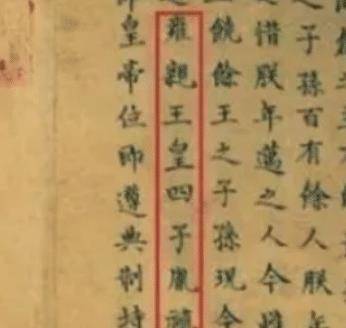 之子孫百有餘人朕年
之惜朕年邁之人今
饒餘王之子孫現今
雍親王皇四子胤禛
皇帝位即遵典制持